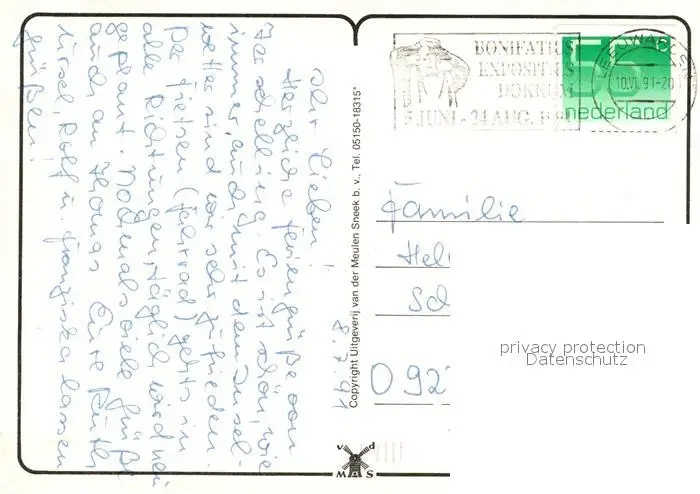 8.7.91
Ihr Lieben!
Herzliche Feriengrüße von
Terschelling. Es ist schön, wie
immer, auch mit dem Insel-
wetter sind wir sehr zufrieden.
Per Fietsen (Fahrrad) gehts in
alle Richtungen, täglich wird neu
geplant. Nochmals viele Grüße
auch an Thomas Eure Ruth
Ursel, Rolf u. Franziska lassen
grüßen!
Copyright Uitgeverij van der Meulen Sneek b. v., Tel. 05150-18315*
v d
MAS
BONIFATIUS
EXPOSITIES
DOKKUM
5 JUNI - 24 AUG.
LEEUWARDEN
10.VI.91-20
55 c
nederland
Familie
Hel
Sch
092
privacy protection
Datenschutz